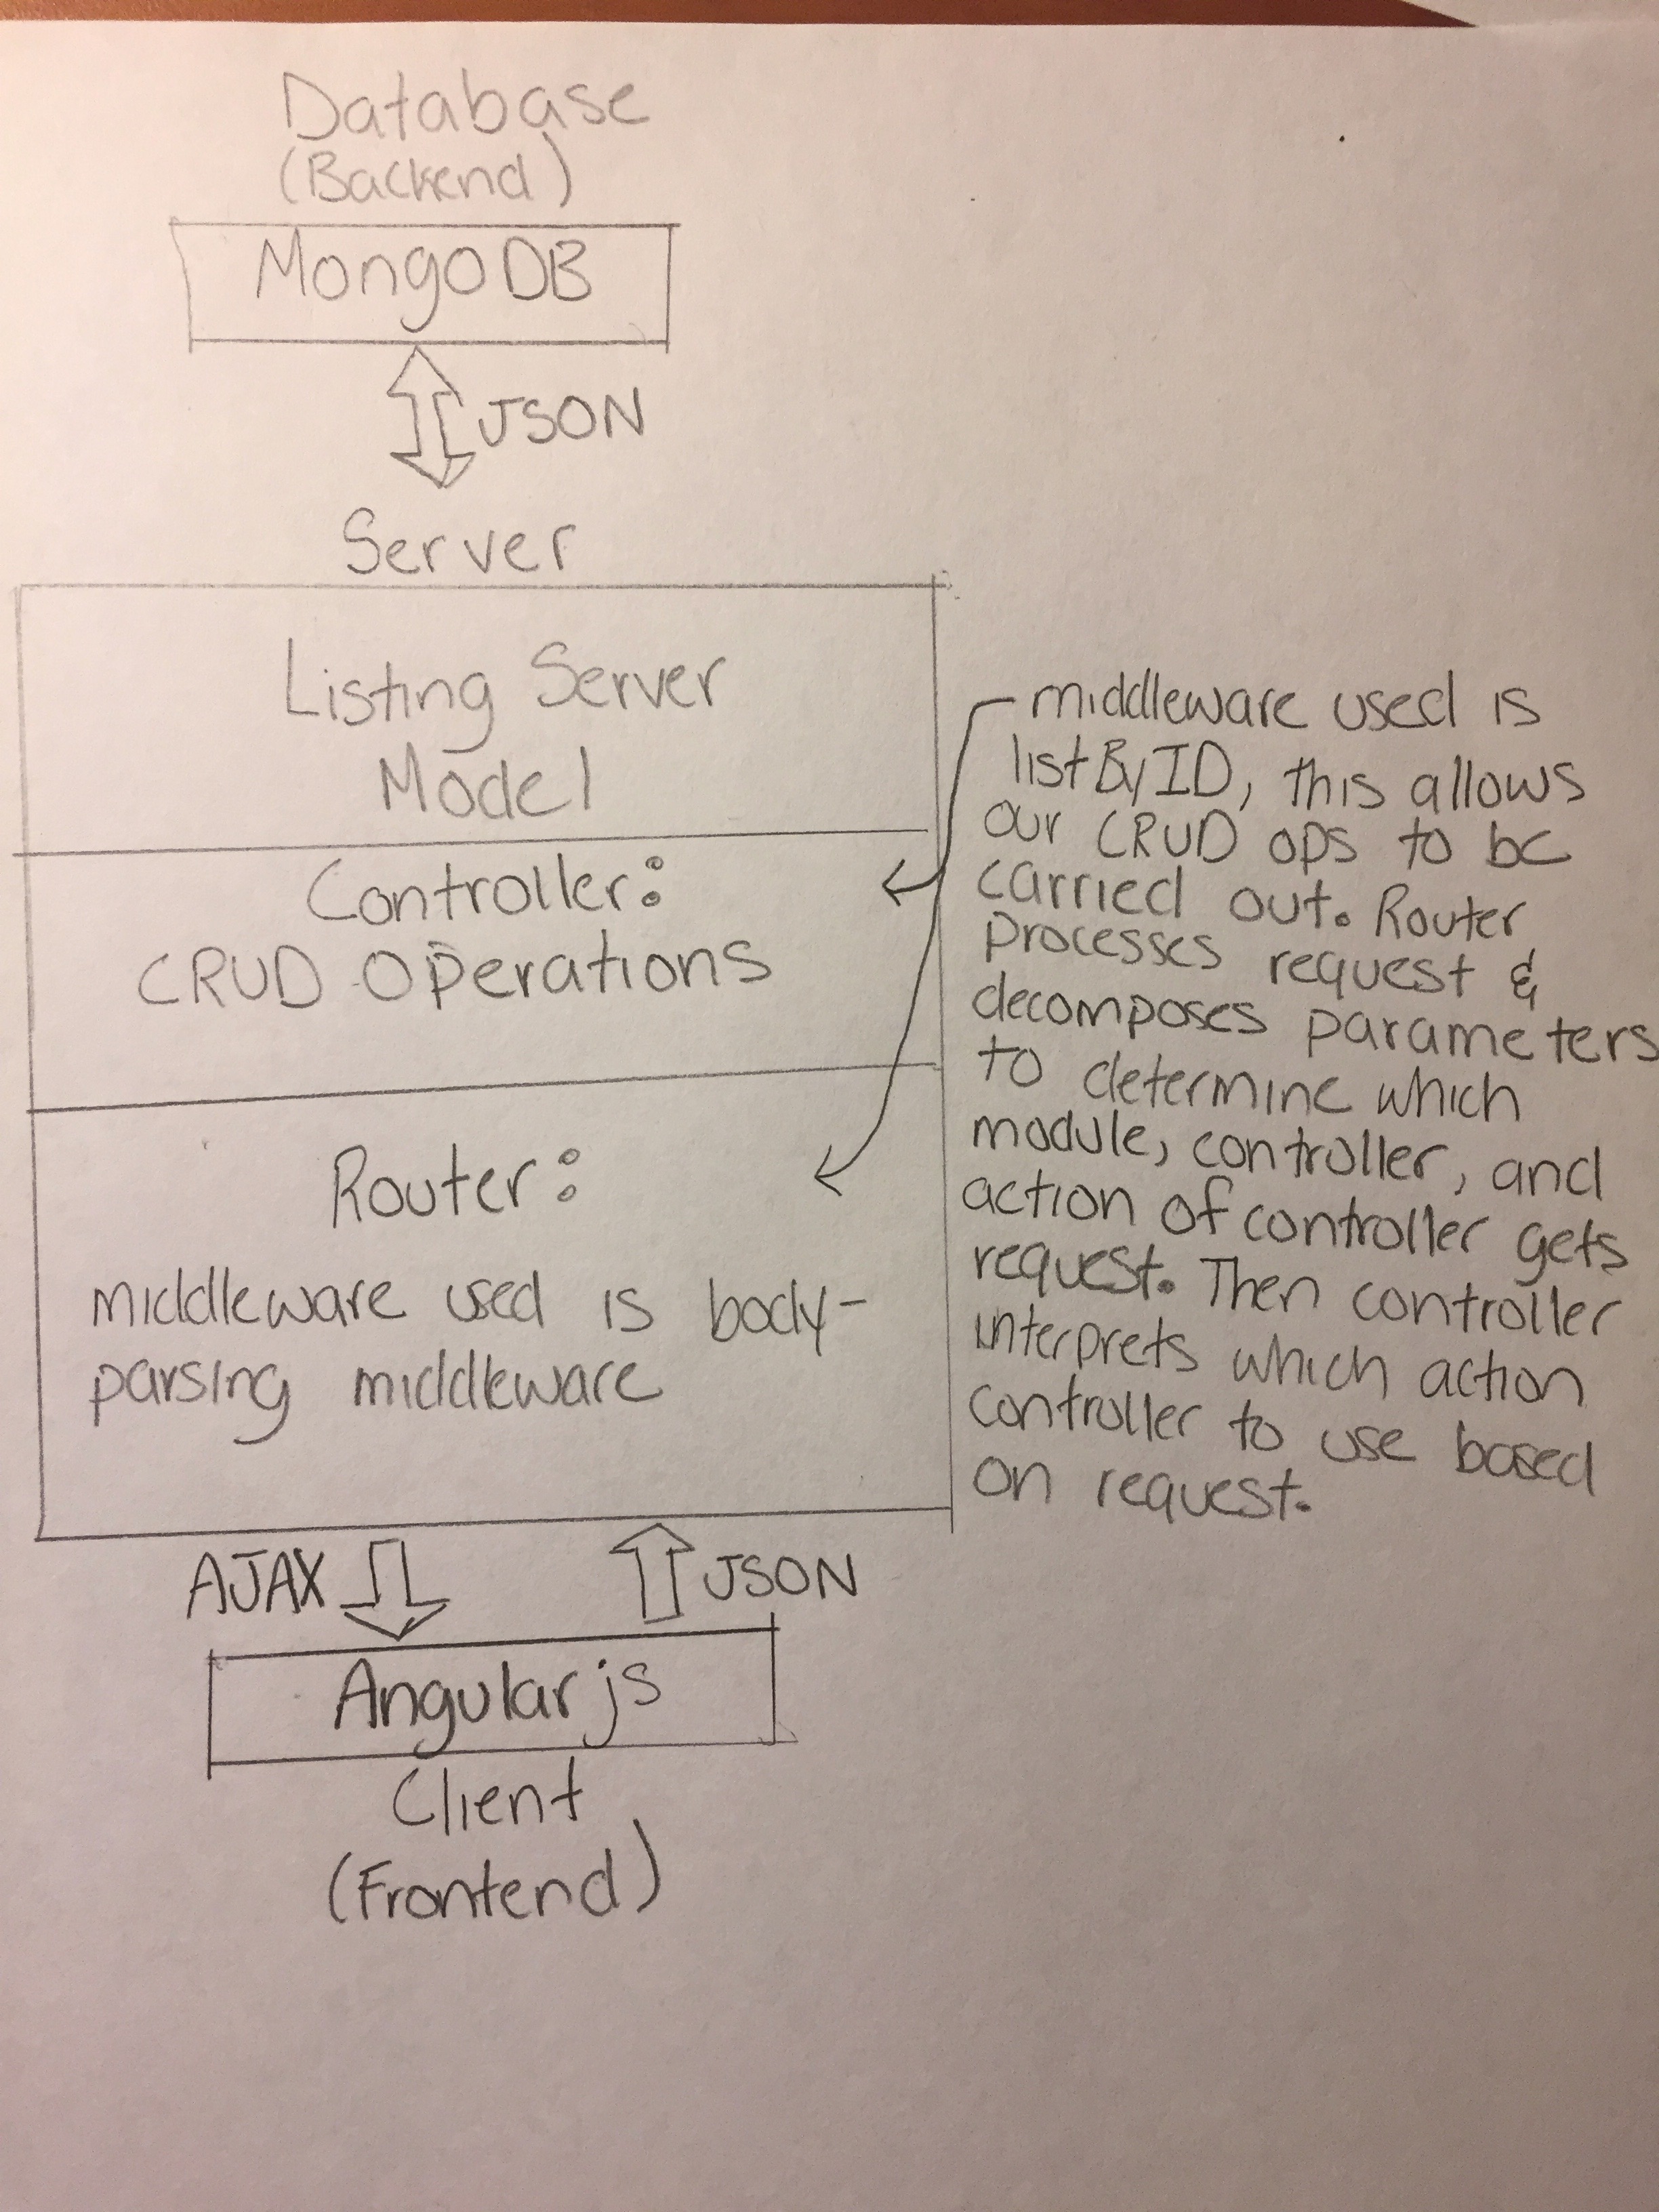 Database
(Backend)
MongoDB
JSON
Server
Listing Server
Model
Controller:
CRUD Operations
Router:
middleware used is body-
parsing middleware
middleware used is
listByID, this allows
our CRUD ops to be
carried out. Router
processes request &
decomposes parameters
to determine which
module, controller, and
action of controller gets
request. Then controller
interprets which action
controller to use based
on request.
AJAX
JSON
Angularjs
Client
(Frontend)